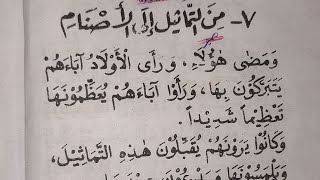 ٧- مِنَ التَّمَاثِيلِ إِلَى الْأَصْنَامِ
وَمَضَى هٰؤُلَاءِ، وَرَأَى الْأَوْلَادُ آبَاءَهُمْ
يَتَبَرَّكُونَ بِهَا، وَرَأَوْا آبَاءَهُمْ يُعَظِّمُونَهَا
تَعْظِيماً شَدِيداً.
وَكَانُوا يَرَوْنَهُمْ يُقَبِّلُونَ هٰذِهِ التَّمَاثِيلَ،
وَيَلْمِسُونَهَا